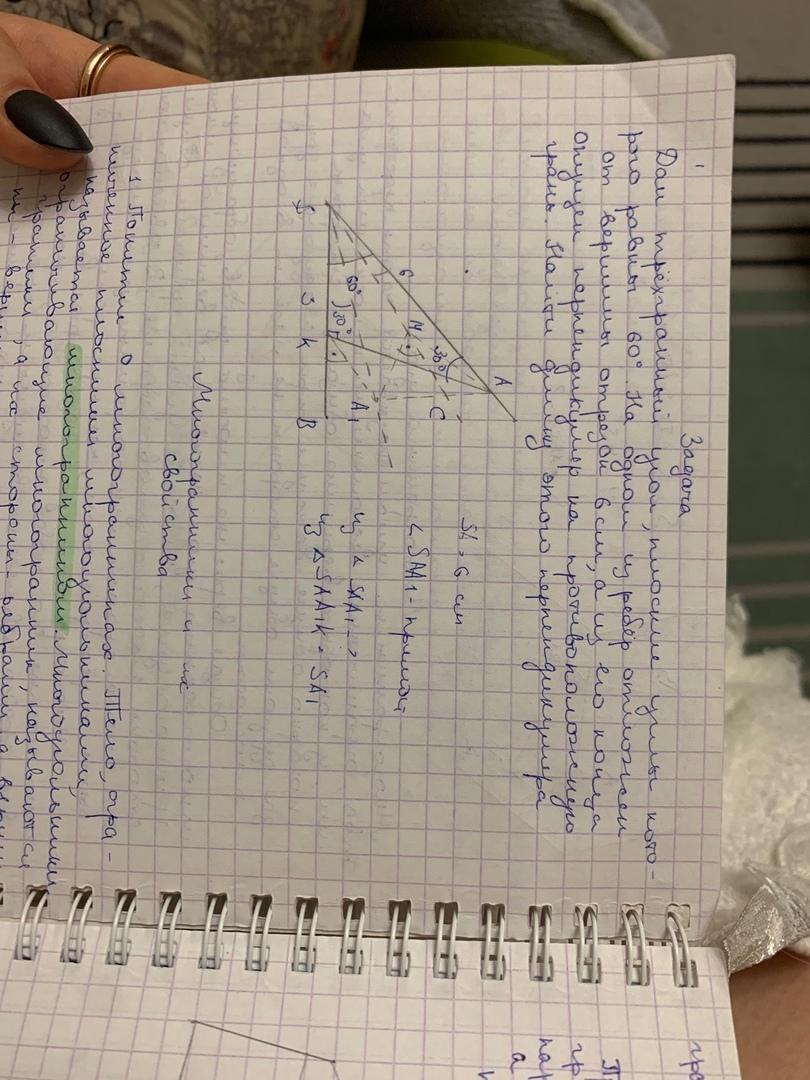 Задача
Дан трёхгранный угол, плоские углы кото-
рого равны 60°. На одном из рёбер отложен
от вершины отрезок 6 см, а из его конца
опущен перпендикуляр на противоположную
грань. Найти длину этого перпендикуляра
A
6
M
30°
C
A₁
60°
30°
S
3
K
B
SA = 6 см
< SAA₁ - прямой
Из ∆ SAA₁ - ?
Из ∆ SAA₁K = SA₁
Многогранники и их
свойства
1. Понятие о многогранниках. Тело, огра-
ниченное плоскими многоугольниками,
называется многогранником. Многоугольники
ограничивающие многогранник, называются
гранями, а их стороны - рёбрами, а верши
ны -